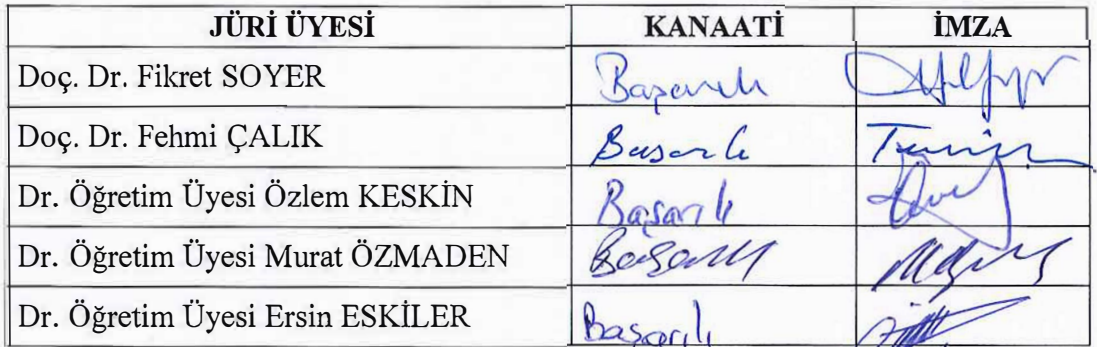 JÜRİ ÜYESİ KANAATİ İMZA
Doç. Dr. Fikret SOYER Başarılı
Doç. Dr. Fehmi ÇALIK Başarılı
Dr. Öğretim Üyesi Özlem KESKİN Başarılı
Dr. Öğretim Üyesi Murat ÖZMADEN Başarılı
Dr. Öğretim Üyesi Ersin ESKİLER Başarılı